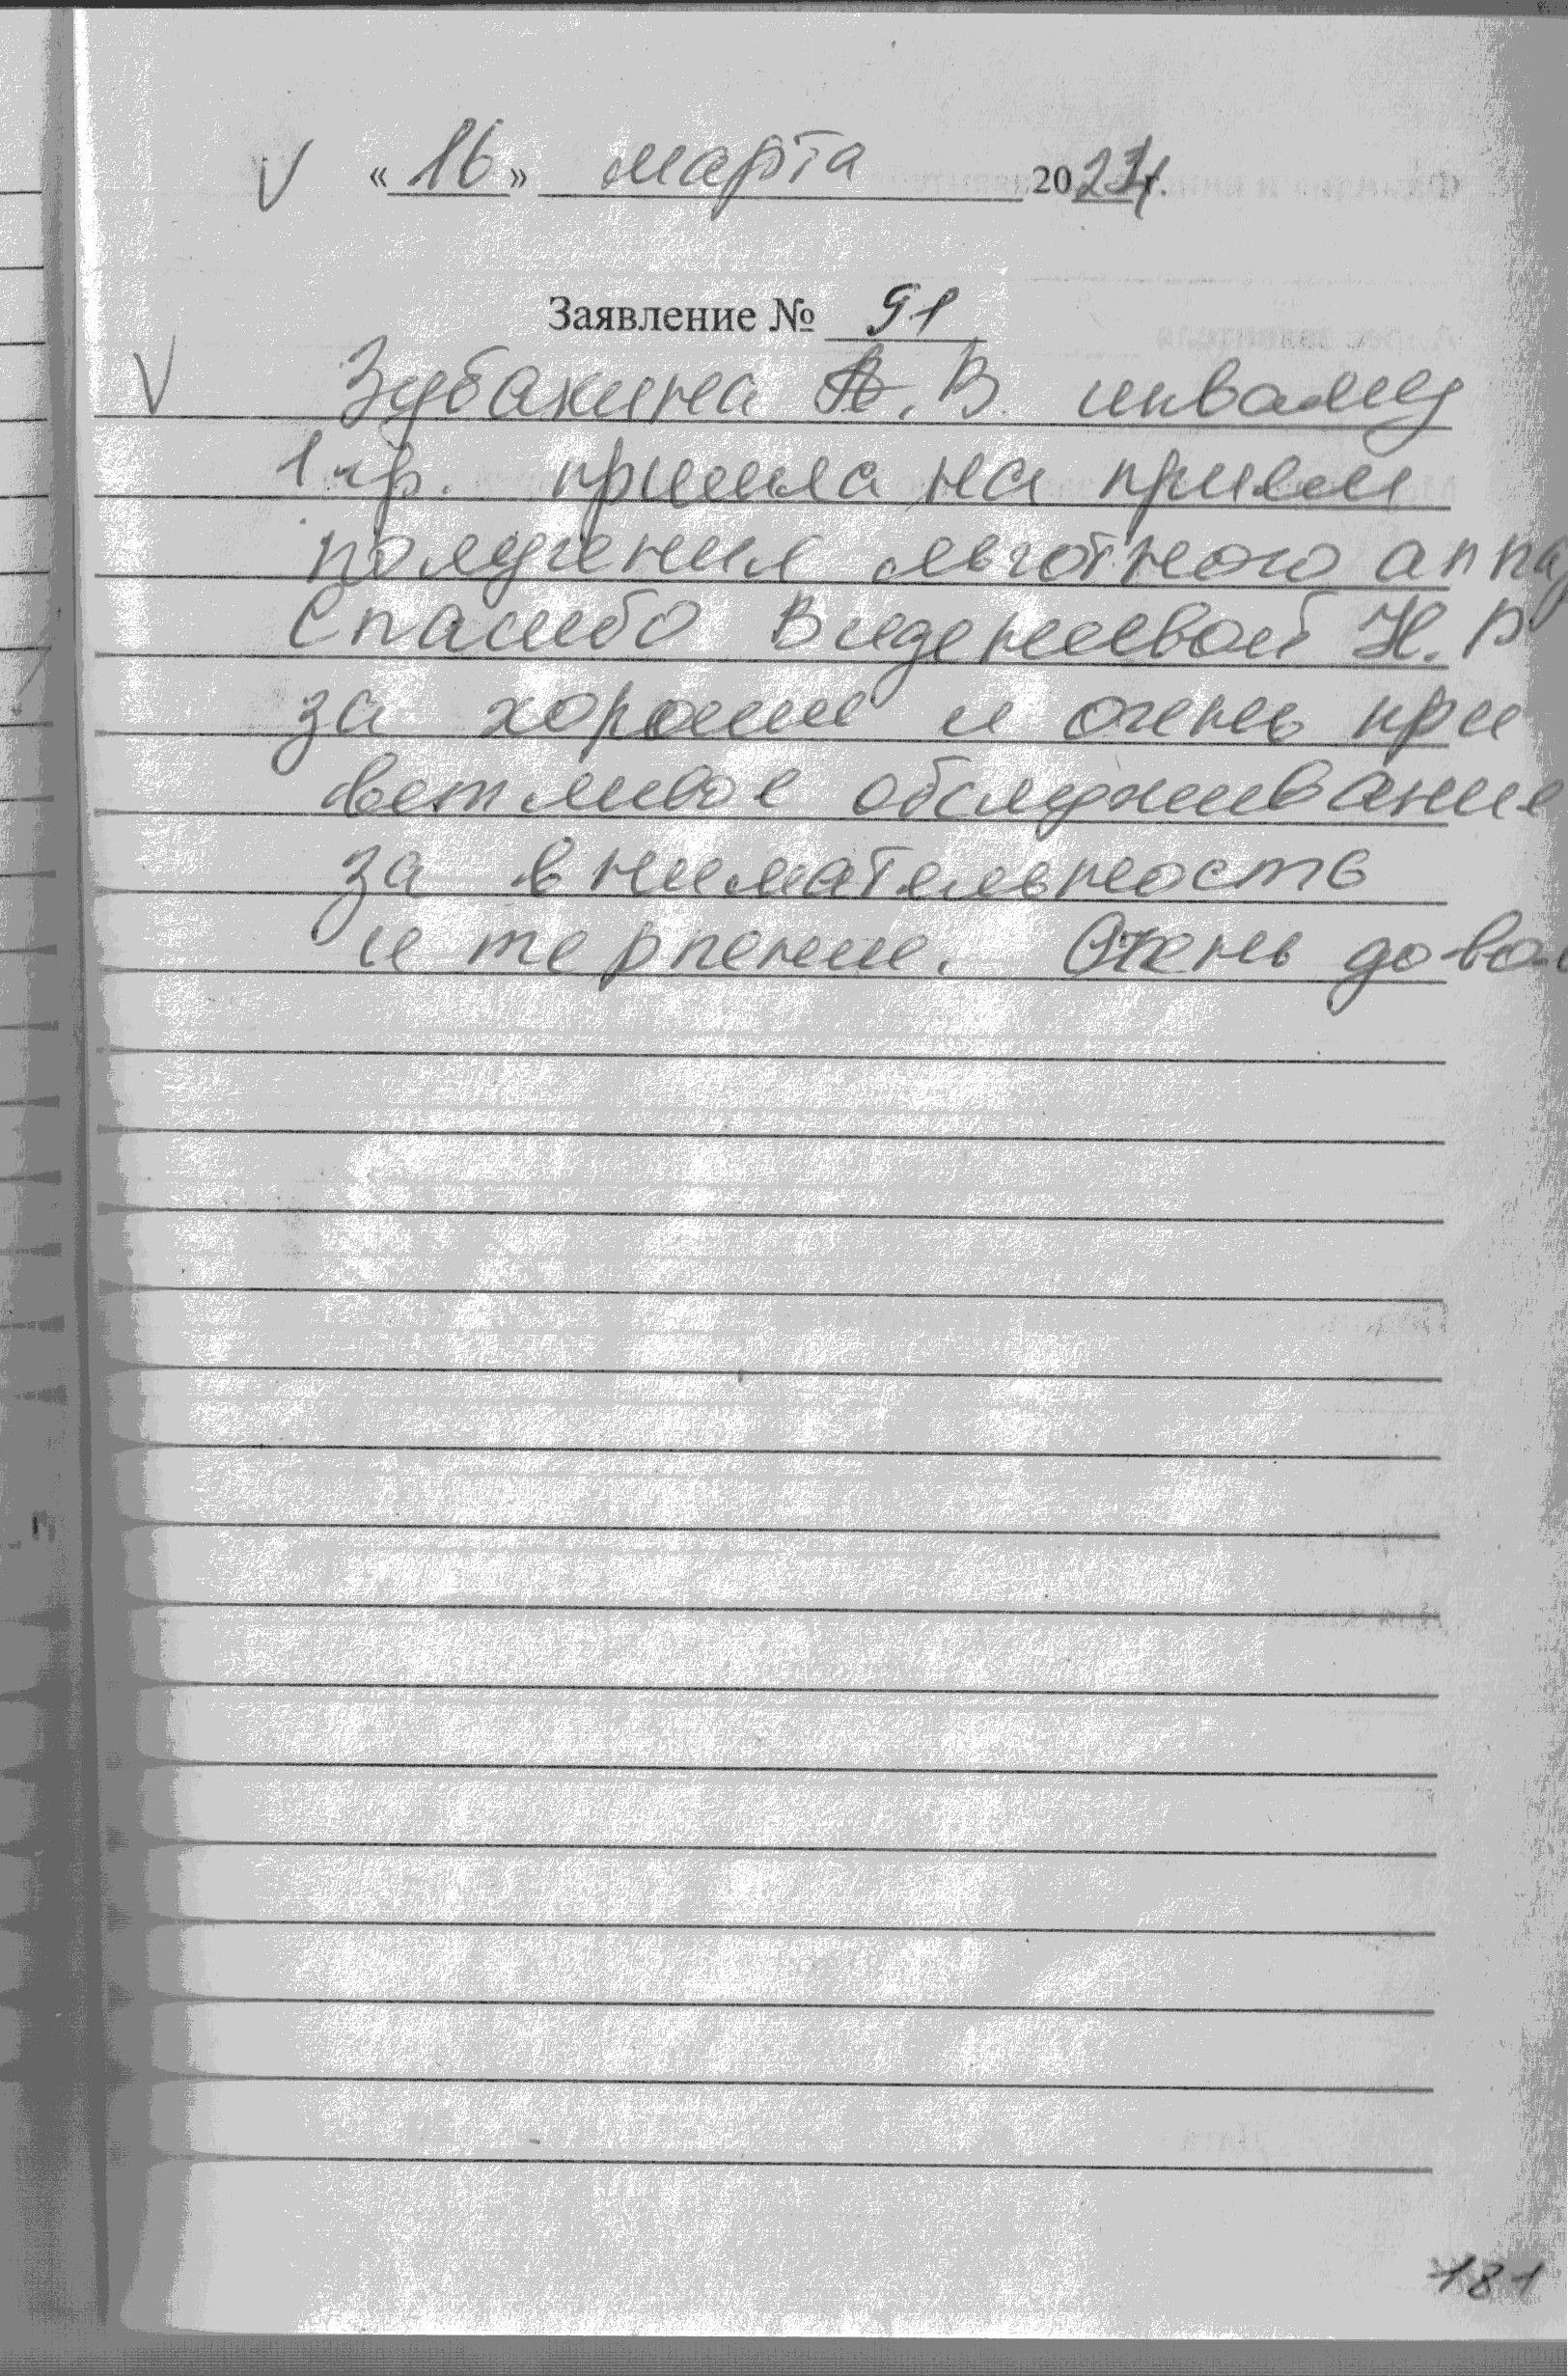 V «16» марта 2024 г.
Заявление № 91
V Зубакина А. В. инвалид
1 гр. пришла на прием
получения льготного аппа
Спасибо Виденеевой Н. В
за хорошее и очень при
ветливое обслуживание
за внимательность
и терпение. Очень доволь
181